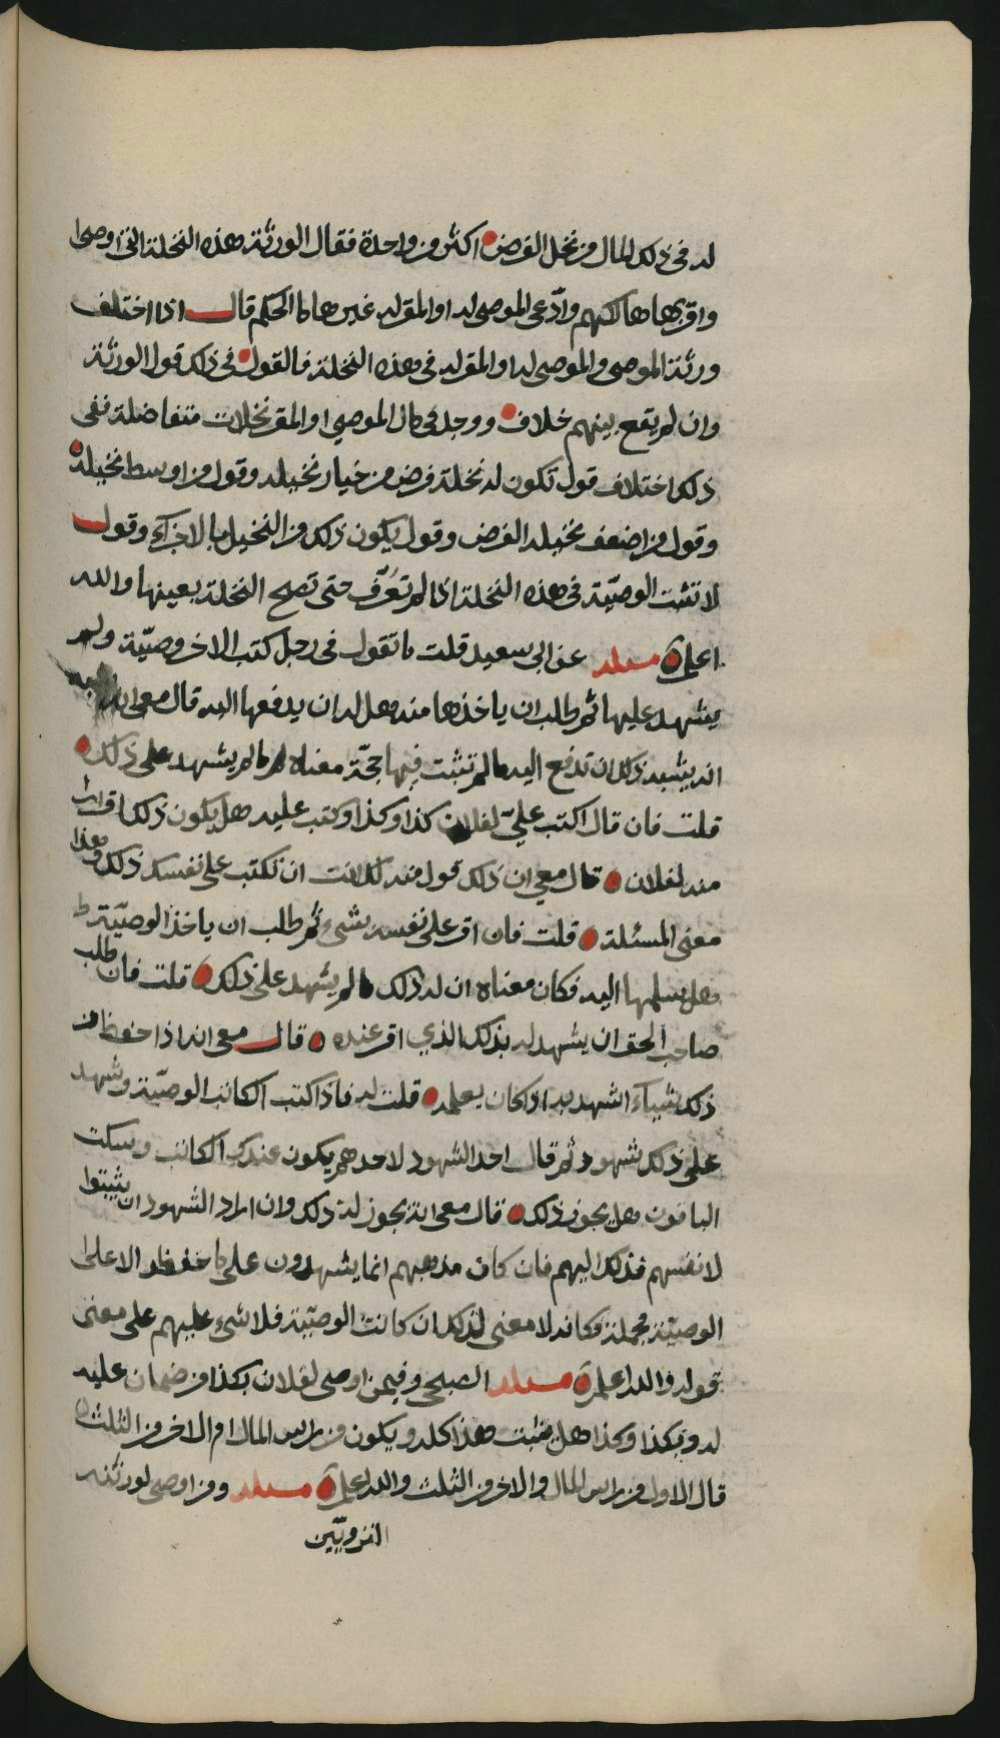 له في ذلك المال من نخل الفرض اكثر من واحدة فقال الورثة هذه النخلة التي اوصى
واقر بها هالكهم وادّعى الموصى له او المقر له غيرها ما الحكم قال اذا اختلف
ورثة الموصي والموصى له او المقر له في هذه النخلة فالقول في ذلك قول الورثة
وان لم يقع بينهم خلاف ووجد في مال الموصي او المقر نخلات متفاضلة ففي
ذلك اختلاف قول تكون له نخلة فرض من خيار نخيله وقول من اوسط نخيله
وقول من اضعف نخيله الفرض وقول يكون ذلك من النخيل بالاجزاء وقول
لا تثبت الوصيّة في هذه النخلة اذا لم تعرّف حتى تصلح النخلة بعينها والله
اعلم مسئلة عن ابي سعيد قلت ما تقول في رجل كتب لاخر وصيّة ولم
يشهد عليها ثم طلب ان ياخذها منه هل له ان يدفعها اليه قال معي
انه يشبه ذلك ان تدفع اليه ما لم تثبت فيها حجّة معناه لم ما لم يشهد على ذلك
قلت فان قال اكتب عليّ لفلان كذا وكذا وكتب عليه هل يكون ذلك اقرارا
منه لفلان قال معي ان ذلك قول منه لك انت ان تكتب على نفسك ذلك وهذا
معنى المسئلة قلت فان اقر على نفسه بشيء ثم طلب ان ياخذ الوصيّة
هل يسلمها اليه فكان معناه ان له ذلك ما لم يشهد على ذلك قلت فان طلب
صاحب الحق ان يشهد له بذلك الذي اقر عنده قال معي انه اذا حفظ من
ذلك شيئاء اشهد به اذ كان يعلمه قلت له فاذا كتب الكاتب الوصيّة وشهد
على ذلك شهود ثم قال احد الشهود لاحدهم يكون عندك الكاتب وسكت
الباقون هل يجوز ذلك قال معي انه يجوز له ذلك وان اراد الشهود ان يثبتوا
لانفسهم فذلك اليهم فان كان مذهبهم انما يشهدون على ما حفظ الاعلى
الوصيّة مجملة فكانه لا معنى لذلك ان كانت الوصيّة فلا شيء عليهم على معنى
قوله والله اعلم مسئلة الصبحي وفيمن اوصى لفلان بكذا من ضمان عليه
له وبكذا وكذا هل يثبت هذا كله ويكون من راس المال ام الاخر من الثلث
قال الاول من راس المال والاخر من الثلث والله اعلم مسئلة ومن اوصى لورثته